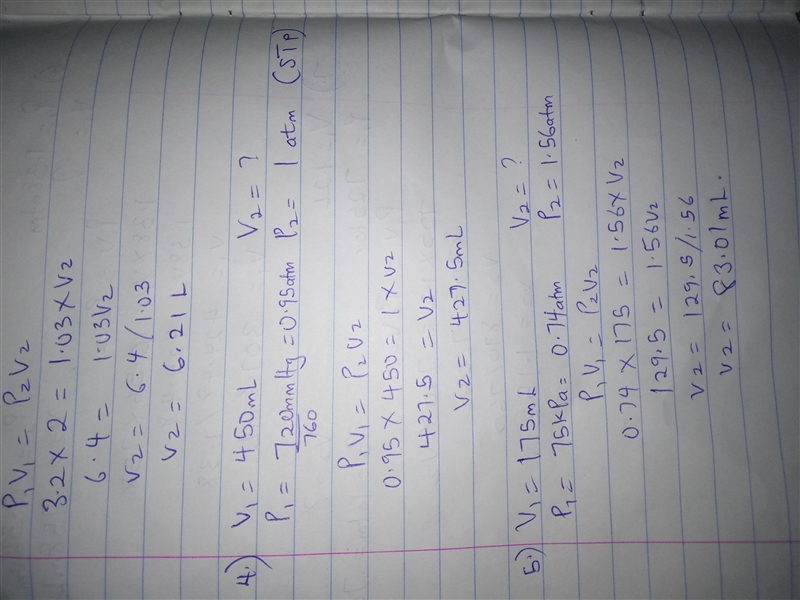 P₁V₁ = P₂V₂
3.2 x 2 = 1.03 x V₂
6.4 = 1.03V₂
V₂ = 6.4/1.03
V₂ = 6.21 L
4.) V₁ = 450mL V₂ = ?
P₁ = 720mmHg = 0.95atm P₂ = 1 atm (STP)
760
P₁V₁ = P₂V₂
0.95 x 450 = 1 x V₂
427.5 = V₂
V₂ = 427.5mL
5.) V₁ = 175mL V₂ = ?
P₁ = 75kPa = 0.74atm P₂ = 1.56atm
P₁V₁ = P₂V₂
0.74 x 175 = 1.56 x V₂
129.5 = 1.56V₂
V₂ = 129.5/1.56
V₂ = 83.01mL.